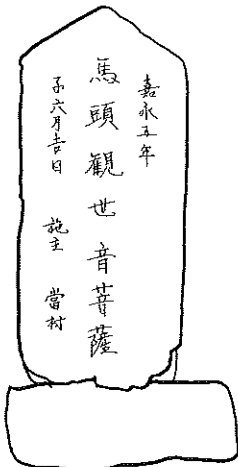 嘉永五年
馬頭観世音菩薩
子六月吉日 施主 當村